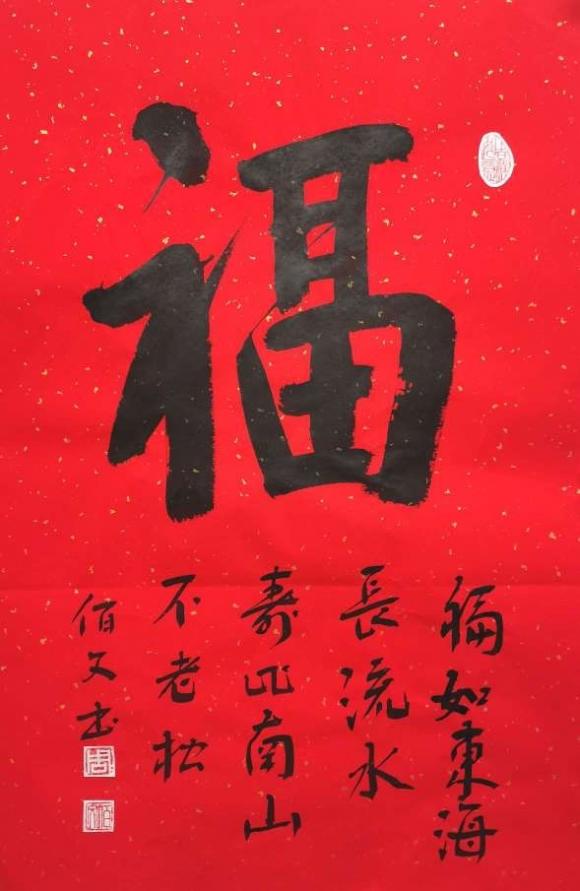 福
福如東海
長流水
壽比南山
不老松
佰文书
周